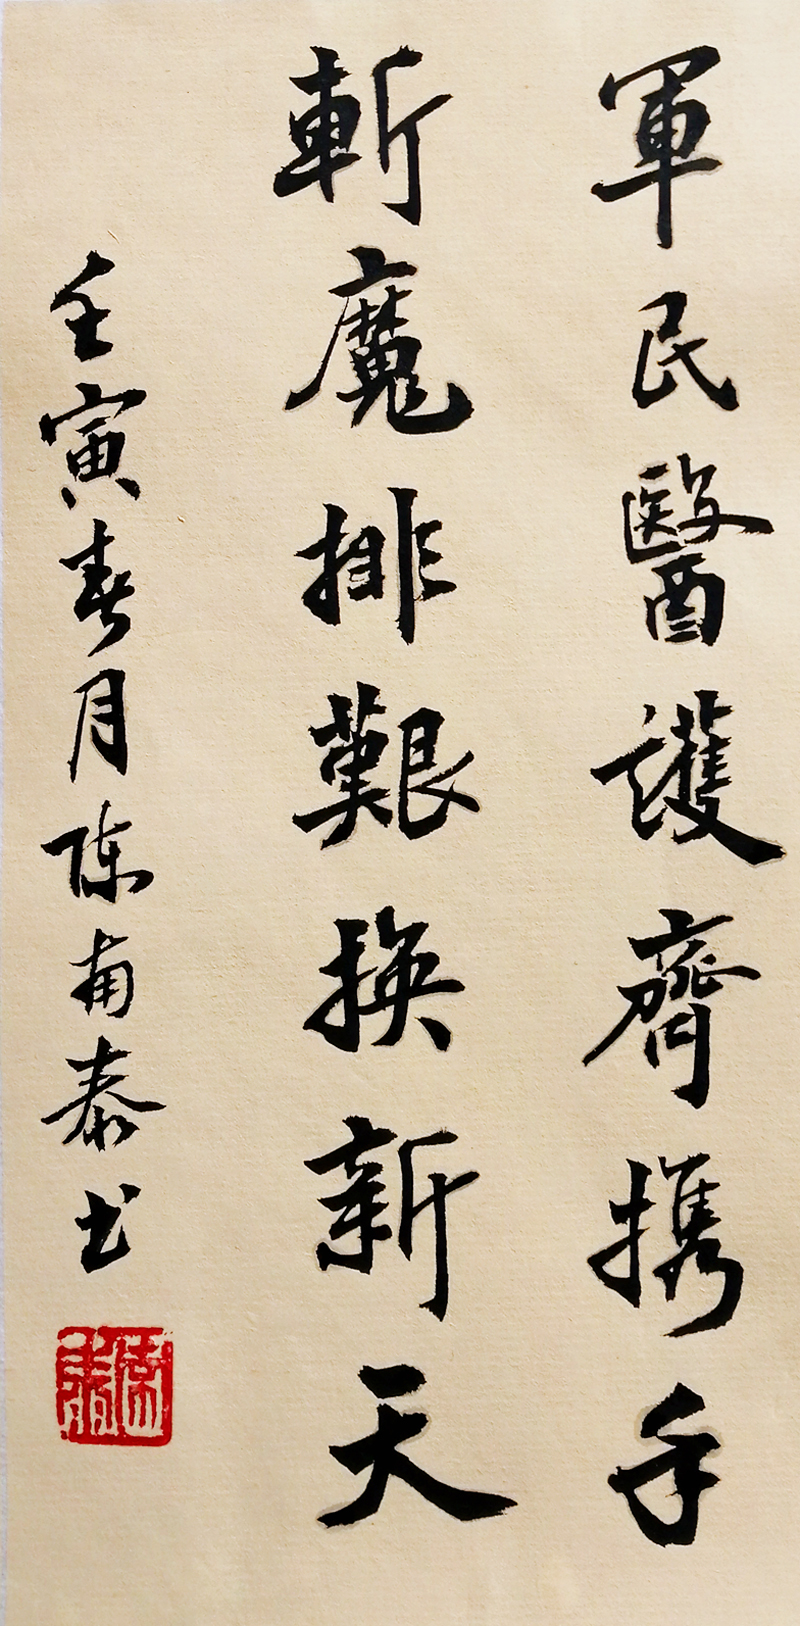 軍民醫護齊携手
斬魔排艱換新天
壬寅春月陈甫泰书